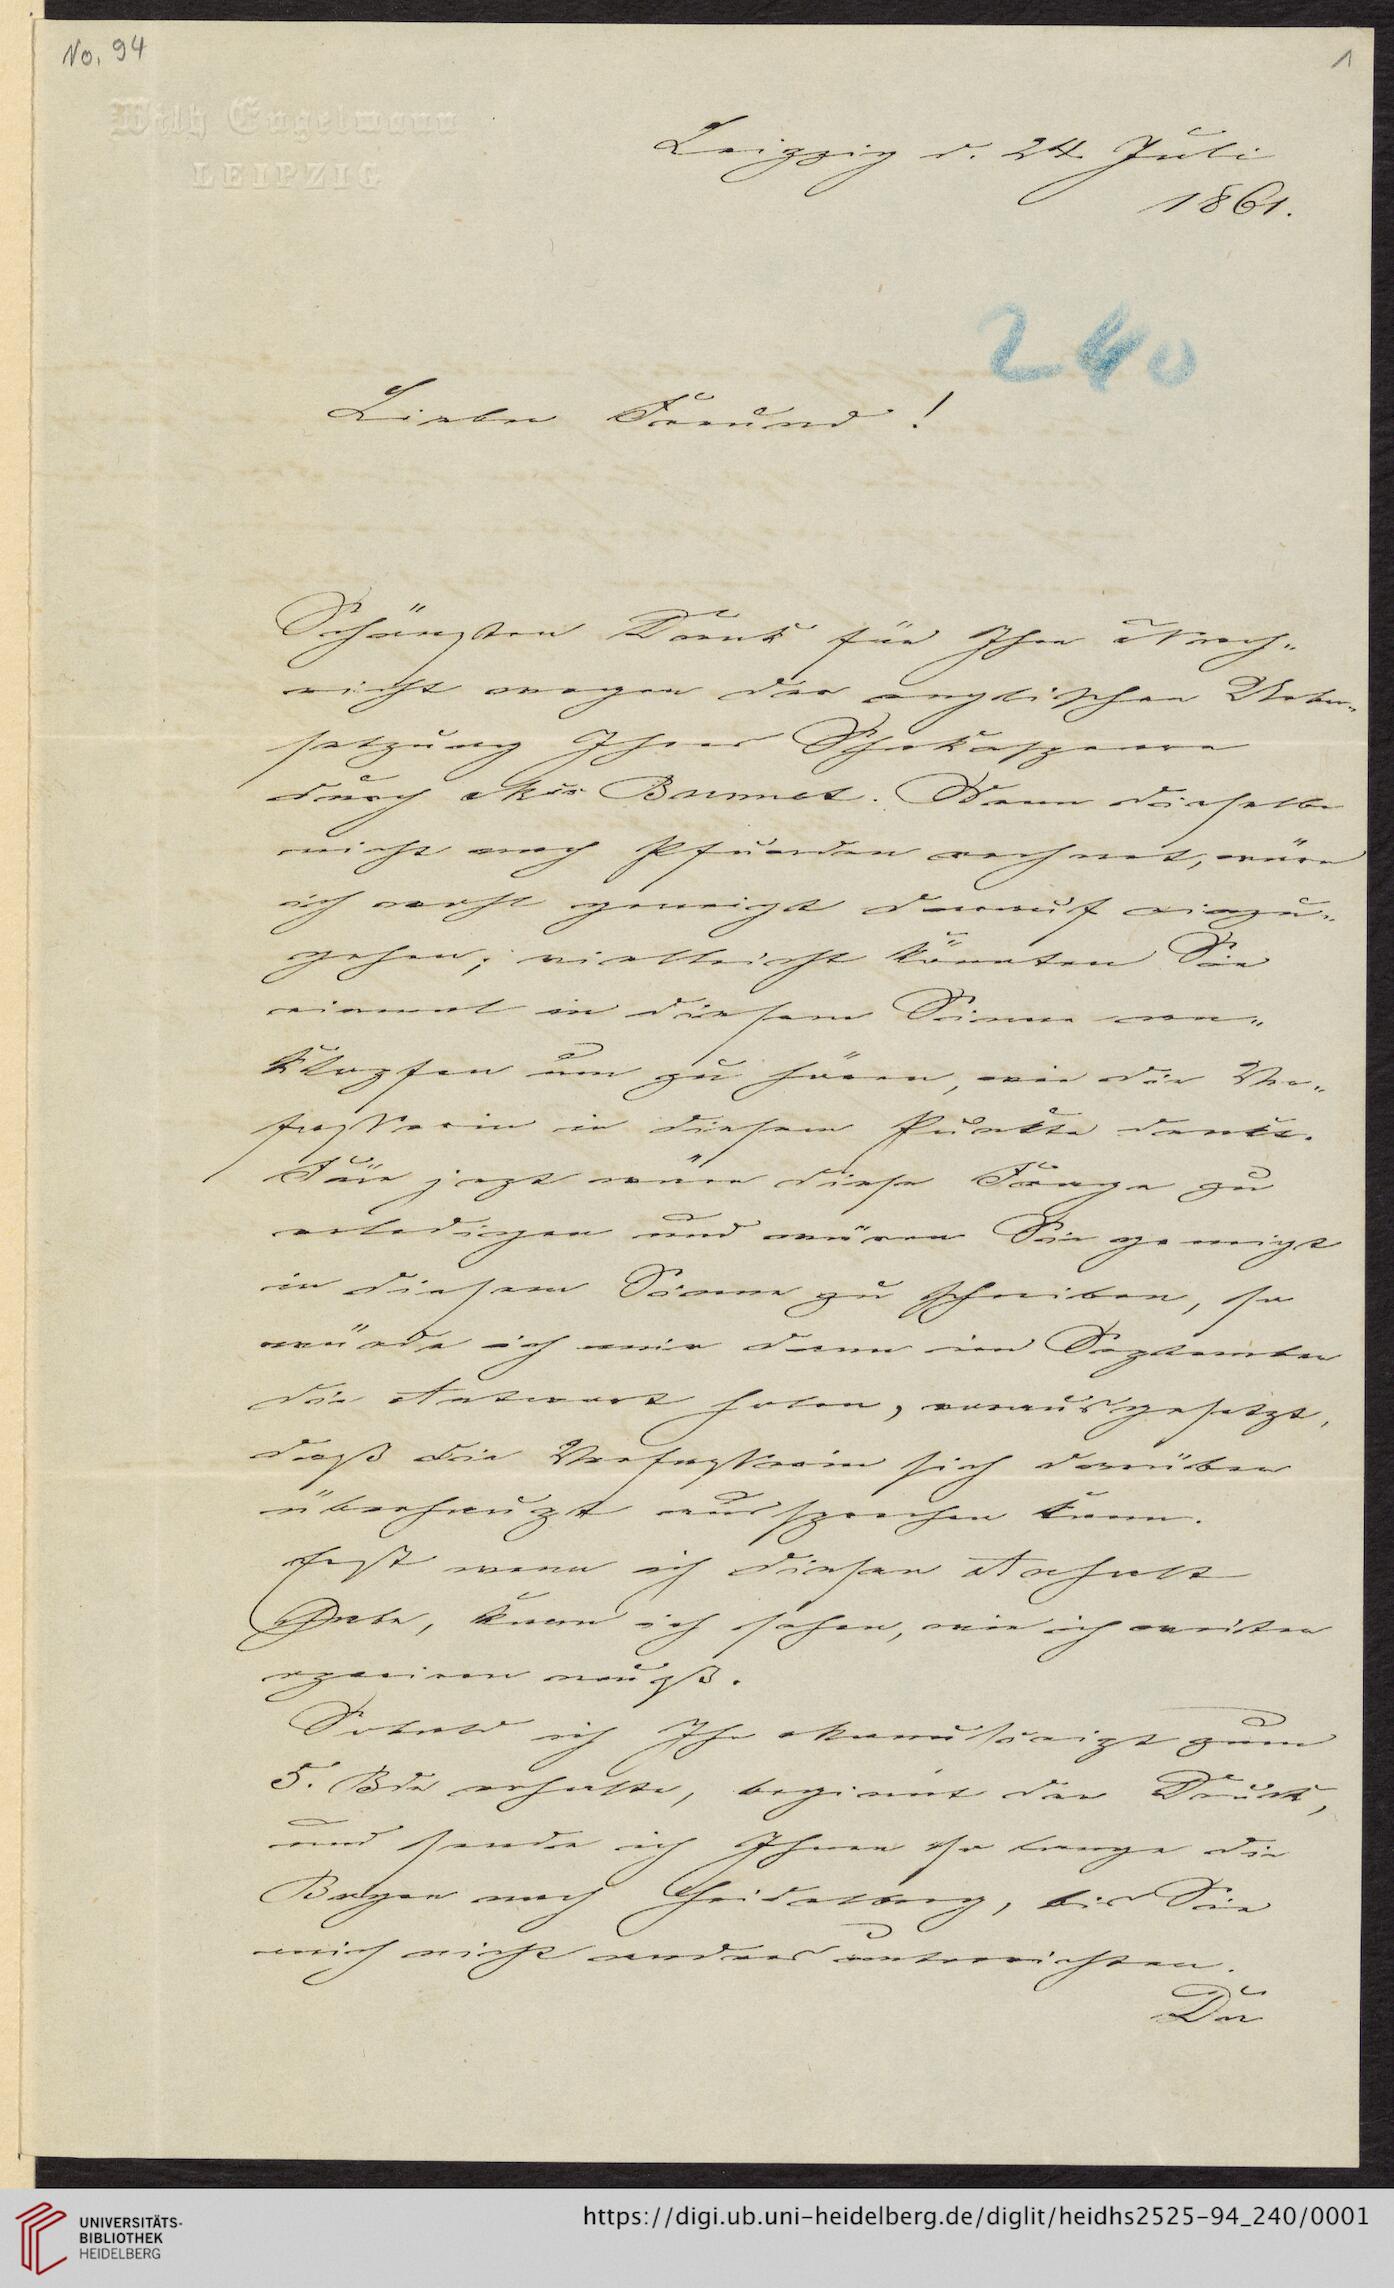 No. 94
1
Wilh Engelmann
LEIPZIG
Leipzig d. 24. Juli
1861.
240
Lieber Freund!
Schönsten Dank für Ihre Nach-
richt wegen der englischen Ueber-
setzung Ihres Shakespeare
durch Mss Bunnet. Wenn dieselbe
nicht nach Pfunden rechnet, wäre
ich wohl geneigt darauf einzu-
gehen; vielleicht könnten Sie
einmal in diesem Sinne an-
klopfen um zu hören, wie die Ver-
fasserin in diesem Punkte denkt.
Für jezt wäre diese Frage zu
erledigen und wären Sie geneigt
in diesem Sinne zu schreiben, so
würde ich mir dann im September
die Antwort holen, vorausgesetzt,
daß die Verfasserin sich darüber
überhaupt aussprechen kann.
Erst wenn ich diesen Anhalt
habe, kann ich sehen, wie ich weiter
operiren muß.
Sobald ich Ihr Manuscript zum
5. Bde erhalte, beginnt der Druck,
und sende ich Ihnen so lange die
Bogen nach Heidelberg, bis Sie
mich nicht anders unterrichten.
Der
UNIVERSITÄTS-
BIBLIOTHEK
HEIDELBERG
https://digi.ub.uni-heidelberg.de/diglit/heidhs2525-94_240/0001